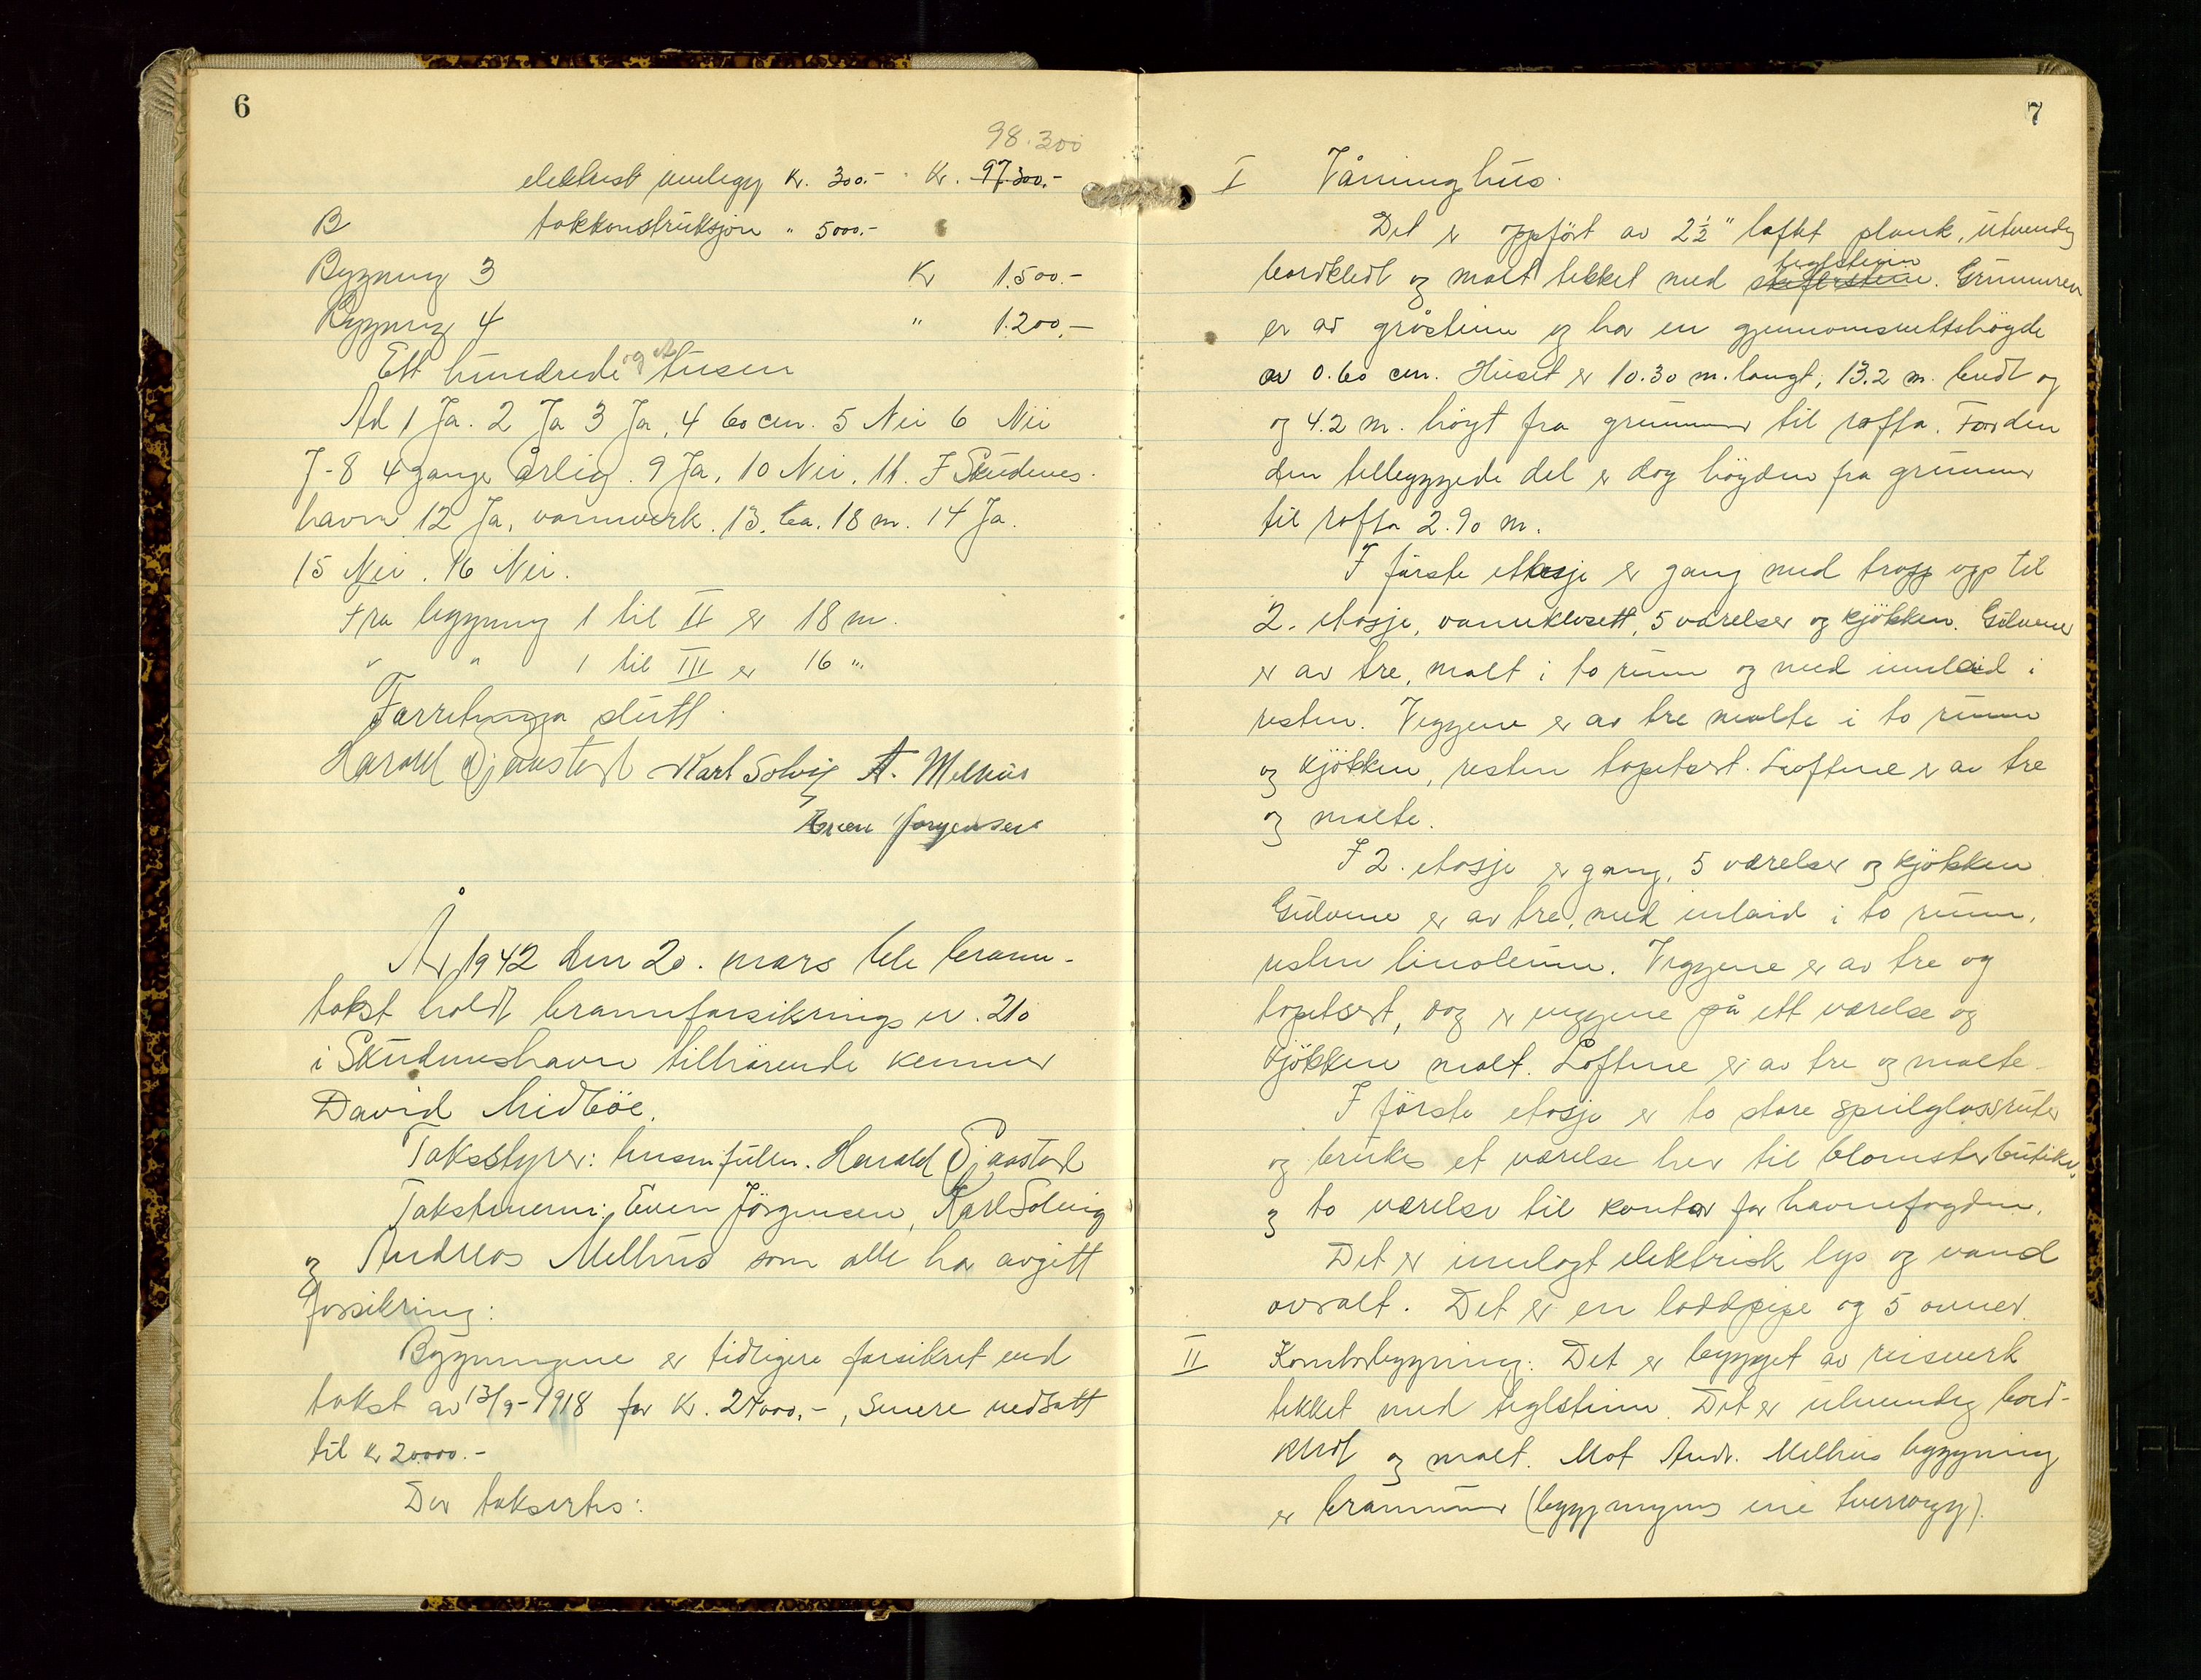 6
98.300
elektrisk innlegg Kr. 300.- Kr. 97.300,-
B takkonstruksjon " 5000.-
Bygning 3 Kr 1.500.-
Bygning 4 " 1.200.-
Ett hundrede og et tusen
Ad 1 Ja. 2 Ja 3 Ja, 4 60 cm. 5 Nei 6 Nei
7-8 4 gange årlig. 9 Ja, 10 Nei. 11. I Skudenes-
havn 12 Ja, vannverk. 13. Ca. 18 m. 14 Ja.
15 Nei. 16 Nei.
Fra bygning 1 til II er 18 m.
" " 1 til III er 16 "
Forretninga slutt.
Harald Karl Solvig A. Melhus
Even Jørgensen
År 1942 den 20. mars ble brann-
takst holdt brannforsikrings nr. 210
i Skudeneshavn tilhörende
David Midböe.
Takstyrer: Harald
Takstmenn: Even Jörgensen, Karl Solvig
og Andreas Melhus som alle har avgitt
forsikring:
Bygningene er tidligere forsikret ved
takst av 13/9-1918 for Kr. 24000.-, senere nedsatt
til kr 20.000.-
Der takseres:
7
I Våninghus.
Det er oppfört av 2½" laftet plank, utvendig
teglstein
bordkledt og malt tekket med skiferstein. Grunnmuren
er av gråstein og har en gjennomsnittshögde
av 0.60 cm. Huset er 10.30 m. langt, 13.2 m. bredt og
og 4.2 m. högt fra grunnmur til rafta. For den
den tilbyggede del er dog högden fra grunnmur
til rafta 2.90 m.
I förste etasje er gang med trapp opp til
2. etasje, vannklosett, 5 værelser og kjökken. Gulvene
er av tre, malt i to rum og med innlaid i
resten. Veggene er av tre malte i to rum
og kjökken, resten tapetsert. Loftene er av tre
og malte.
I 2. etasje er gang, 5 værelser og kjökken
Gulvene er av tre, med inlaid i to rum,
resten linoleum. Veggene er av tre og
tapetsert, dog er veggene på ett værelse og
kjökken malt. Loftene er av tre og malte.
I förste etasje er to store speilglassruter
og brukes et værelse her til blomsterbutikk,
og to værelse til kontor for havnefogden.
Det er innlagt elektrisk lys og vand
overalt. Det er en loddpipe og 5 ovner.
II Kontorbygning: Det er bygget av reisverk
tekket med teglstein. Det er utvendig bord-
kledt og malt. Mot Andr. Melhus bygning
er brannmur (bygningens ene tvervegg).